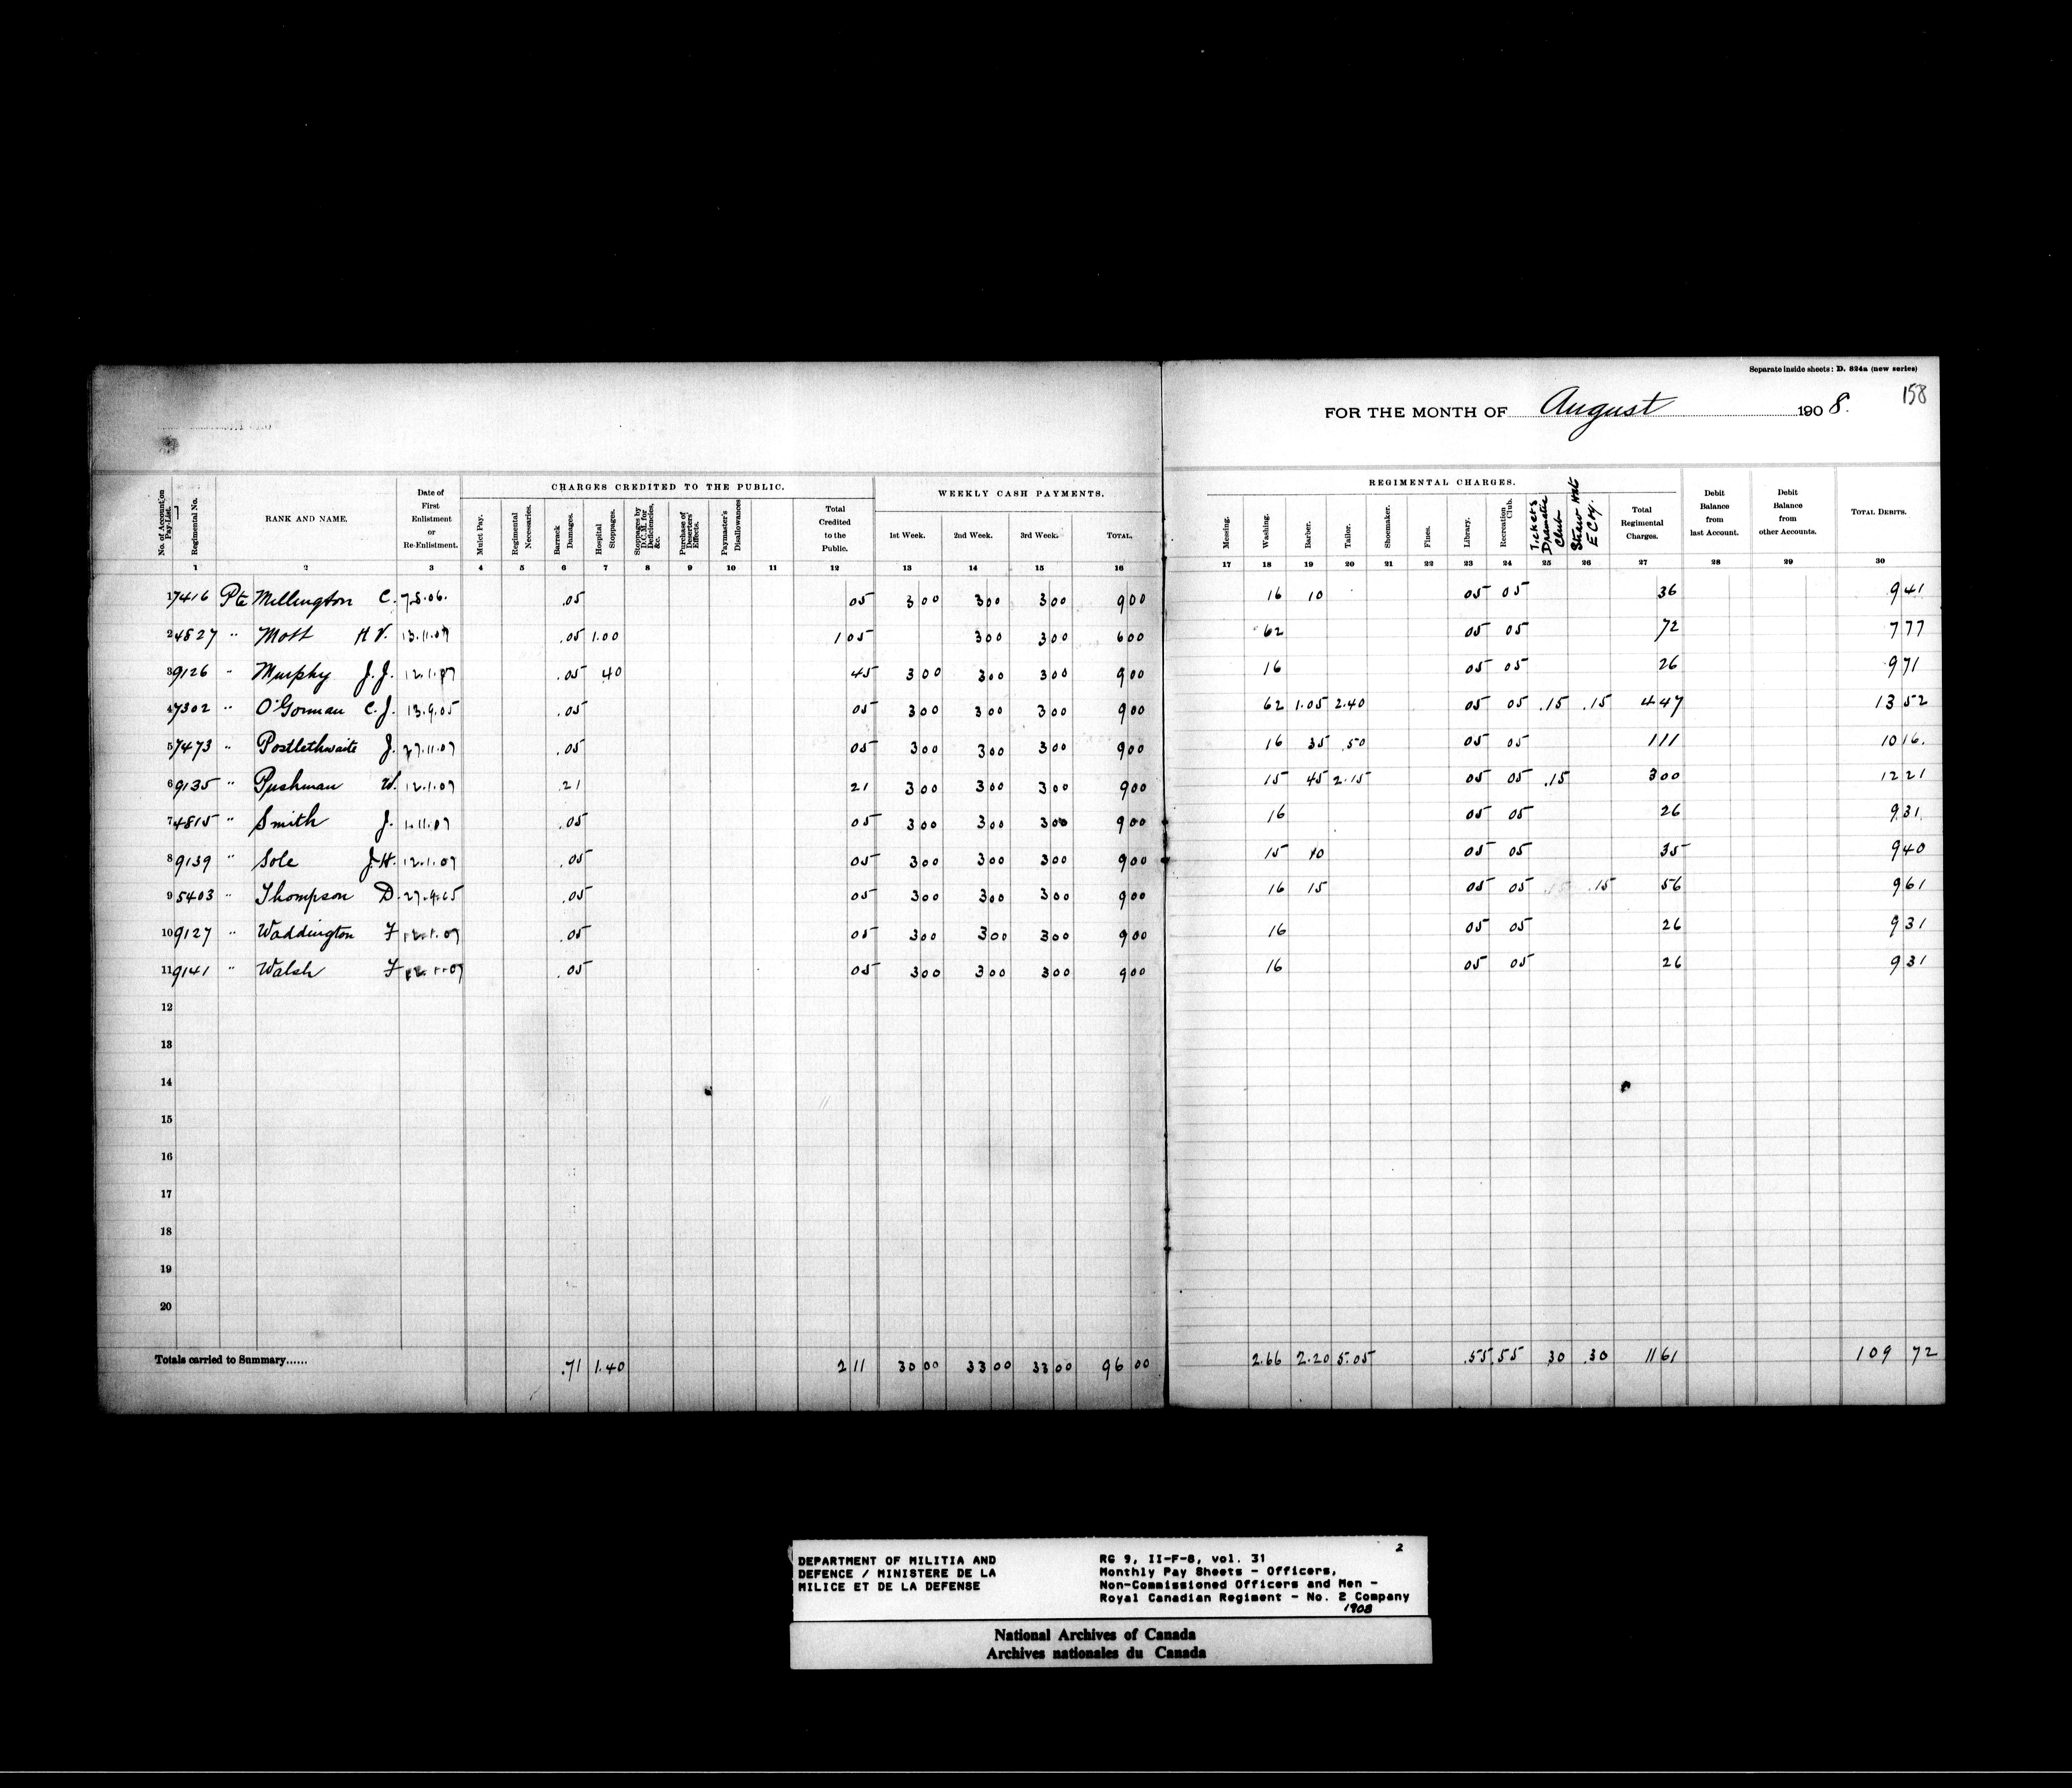 Separate inside sheets: D. 824a (new series)
158
FOR THE MONTH OF August 1908.
No. of Account on Pay-List. Regimental No. RANK AND NAME. Date of First Enlistment or Re-Enlistment. CHARGES CREDITED TO THE PUBLIC. WEEKLY CASH PAYMENTS. REGIMENTAL CHARGES. Debit Balance from last Account. Debit Balance from other Accounts. TOTAL DEBITS.
Mulct Pay. Regimental Necessaries. Barrack Damages. Hospital Stoppages. Stoppages by D.C.M. for Deficiencies, &c. Purchase of Deserters' Effects. Paymaster's Disallowances Total Credited to the Public. 1st Week. 2nd Week. 3rd Week. TOTAL. Messing. Washing. Barber. Tailor. Shoemaker. Fines. Library. Recreation Club. Tickets Dramatic Club Straw Hat E Coy. Total Regimental Charges.
1 2 3 4 5 6 7 8 9 10 11 12 13 14 15 16 17 18 19 20 21 22 23 24 25 26 27 28 29 30
1 7416 Pte Millington C. 7.5.06. .05 05 3 00 3 00 3 00 9 00 16 10 05 05 36 9 41
2 4827 " Mott H V. 13.11.07 .05 1.00 1 05 3 00 3 00 6 00 62 05 05 72 7 77
3 9126 " Murphy J. J. 12.1.07 .05 40 45 3 00 3 00 3 00 9 00 16 05 05 26 9 71
4 7302 " O'Gorman C. J. 13.9.05 .05 05 3 00 3 00 3 00 9 00 62 1.05 2.40 05 05 .15 .15 4 47 13 52
5 7473 " Postlethwaite J. 27.11.07 .05 05 3 00 3 00 3 00 9 00 16 35 .50 05 05 1 11 10 16.
6 9135 " Pushman W. 12.1.07 .21 21 3 00 3 00 3 00 9 00 15 45 2.15 05 05 .15 3 00 12 21
7 4815 " Smith J. 1.11.07 .05 05 3 00 3 00 3 00 9 00 16 05 05 26 9 31
8 9139 " Sole J.H. 12.1.07 .05 05 3 00 3 00 3 00 9 00 15 10 05 05 35 9 40
9 5403 " Thompson D. 27.9.05 .05 05 3 00 3 00 3 00 9 00 16 15 05 05 .15 56 9 61
10 9127 " Waddington F 12.1.07 .05 05 3 00 3 00 3 00 9 00 16 05 05 26 9 31
11 9141 " Walsh F 12.1.07 .05 05 3 00 3 00 3 00 9 00 16 05 05 26 9 31
12
13
14
15
16
17
18
19
20
Totals carried to Summary...... .71 1.40 2 11 30 00 33 00 33 00 96 00 2.66 2.20 5.05 .55 55 30 .30 11 61 109 72
2
DEPARTMENT OF MILITIA AND
DEFENCE / MINISTERE DE LA
MILICE ET DE LA DEFENSE
RG 9, II-F-8, vol. 31
Monthly Pay Sheets - Officers,
Non-Commissioned Officers and Men -
Royal Canadian Regiment - No. 2 Company
1908
National Archives of Canada
Archives nationales du Canada